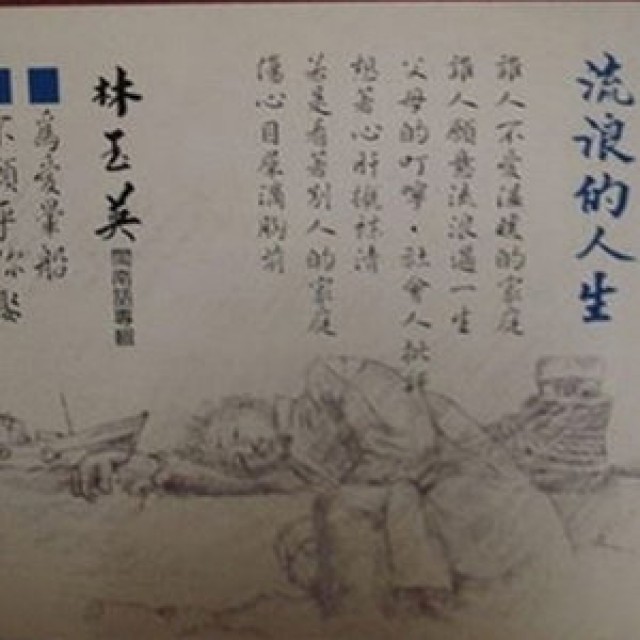 流浪的人生
誰人不愛溫暖的家庭
誰人願意流浪過一生
父母的叮嚀，社會人批評
想著心肝攏袂清
若是看著別人的家庭
傷心目屎滴胸前
林玉英
閩南語專輯
為愛暈船